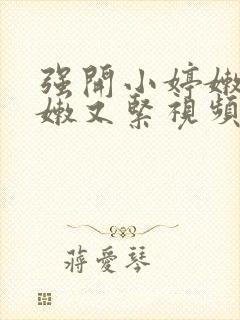 强開小婷嫩
嫩又緊視頻
蔣愛琴